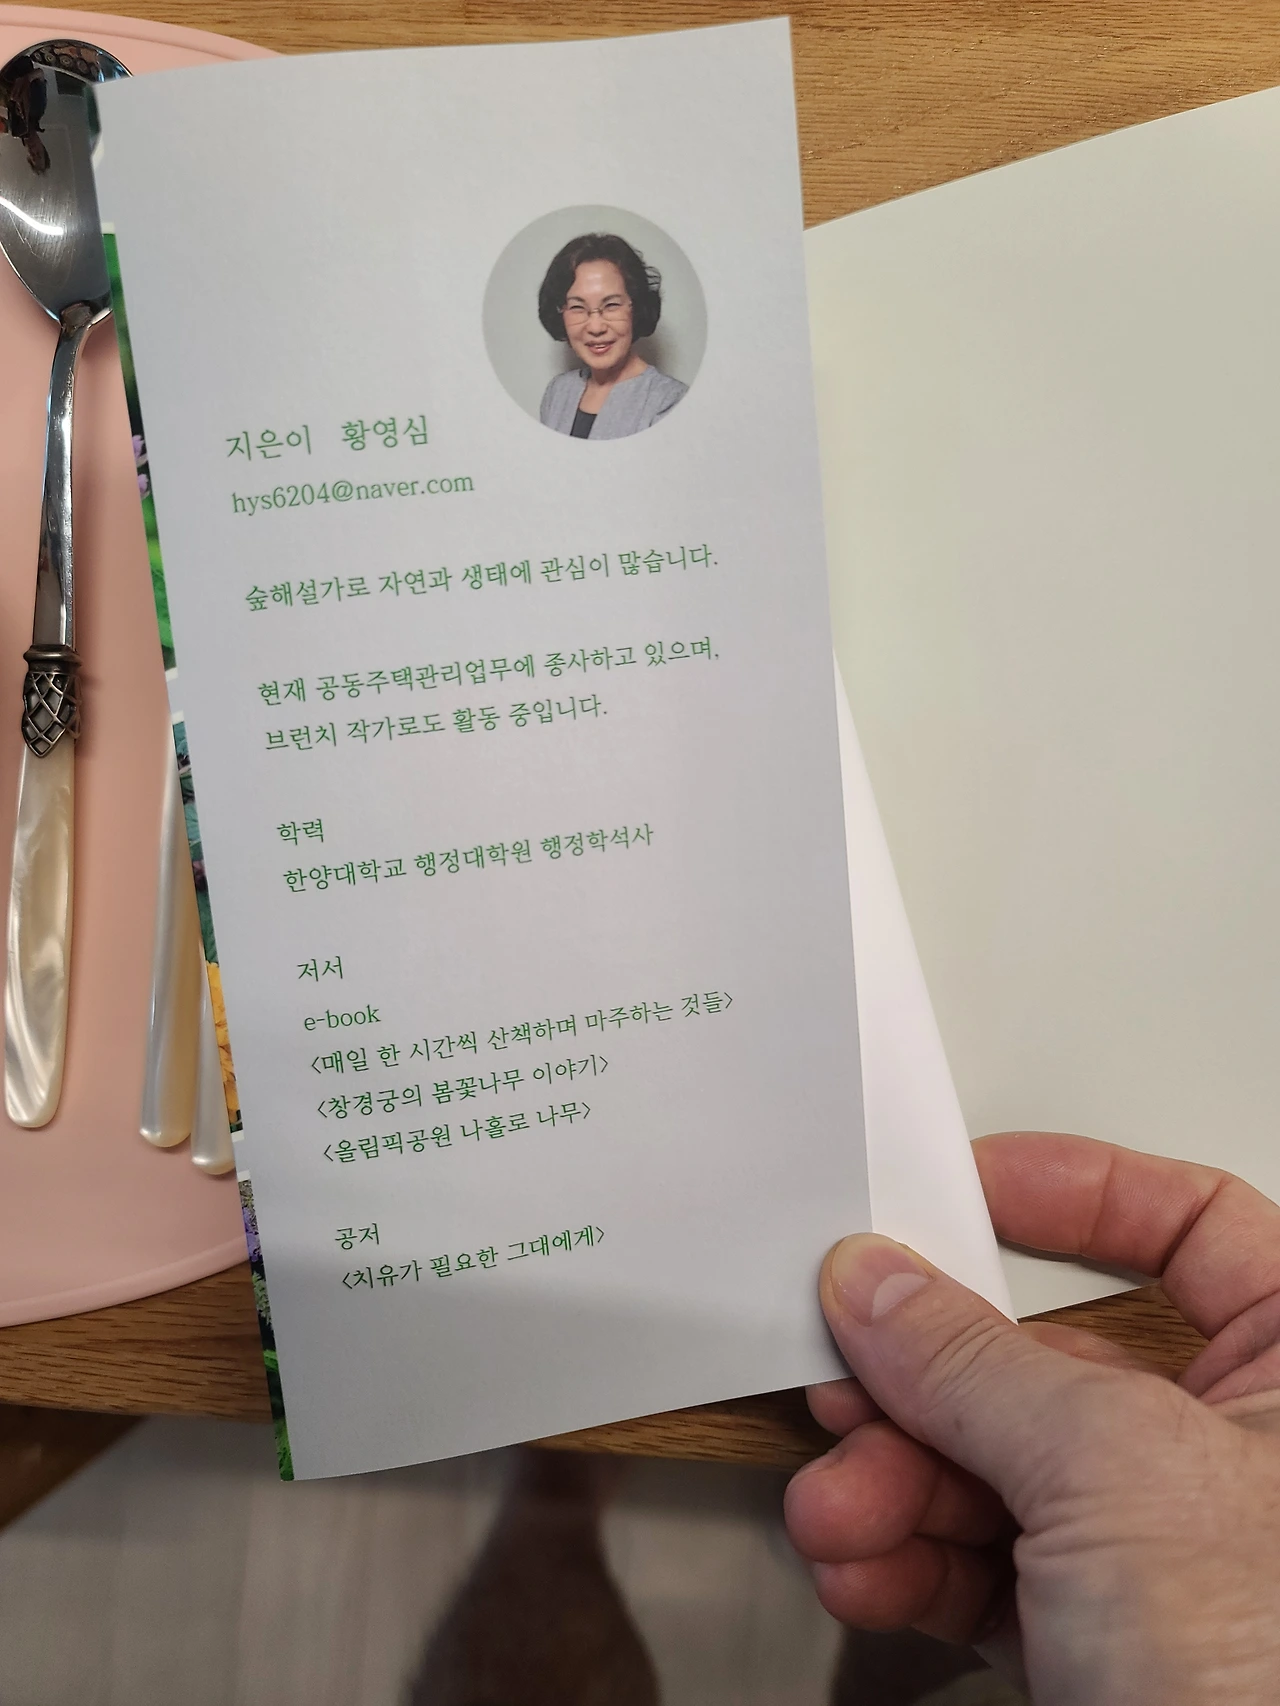 지은이 황영심
hys6204@naver.com
숲해설가로 자연과 생태에 관심이 많습니다.
현재 공동주택관리업무에 종사하고 있으며,
브런치 작가로도 활동 중입니다.
학력
한양대학교 행정대학원 행정학석사
저서
e-book
<매일 한 시간씩 산책하며 마주하는 것들>
<창경궁의 봄꽃나무 이야기>
<올림픽공원 나홀로 나무>
공저
<치유가 필요한 그대에게>